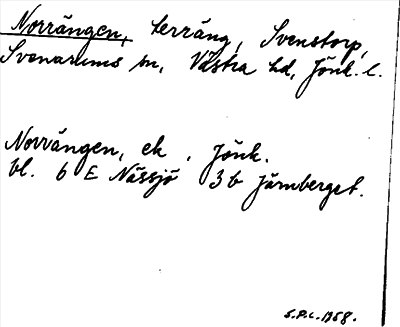 Norrängen, terräng, Svenstorp,
Svenarums sn, Västra hd, Jönk. l.
Norrängen, ek, Jönk.
bl. 6 E Nässjö 3b Järnberget.
S.P.C. 1958.